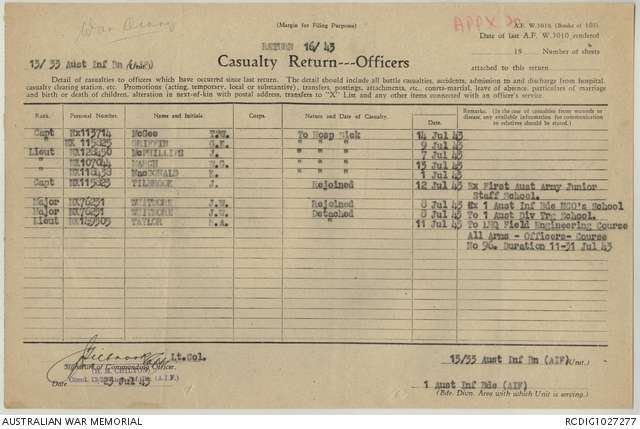 War Diary
(Margin for Filing Purposes)
APPX
A.F. W.3010. (Books of 100)
Date of last A.F. W.3010 rendered
RETURN 16/43
19 Number of sheets
13/33 Aust Inf Bn (Unit)
Casualty Return---Officers
attached to this return
Detail of casualties to officers which have occurred since last return. The detail should include all battle casualties, accidents, admission to and discharge from hospital,
casualty clearing station, etc. Promotions (acting, temporary, local or substantive), transfers, postings, attachments, etc., courts-martial, leave of absence, particulars of marriage
and birth or death of children, alteration in next-of-kin with postal address, transfers to "X" List and any other items connected with an officer's service.
Rank. Personal Number. Name and Initials. Corps. Nature and Date of Casualty. Date. Remarks. (In the case of casualties from wounds or disease, any available information for communication to relatives should be stated.)
Capt NX113714 McGee To Hosp Sick 14 Jul 43
" NX 115825 GRIFFIN G.F. " " " 9 Jul 43
Lieut NX128450 McPHILLIPS J. " " " 7 Jul 43
" NX107044 MARCH " " " 13 Jul 43
" MacDONALD " " " 1 Jul 43
Capt NX115823 TILBROOK J. Rejoined 12 Jul 43 Ex First Aust Army Junior
Staff School.
Major NX76231 WHITMORE J.W. Rejoined 8 Jul 43 Ex 1 Aust Inf Bde NCO's School
Major NX76231 WHITMORE J.W. Detached 8 Jul 43 To 1 Aust Div Trg School.
Lieut TAYLOR " 11 Jul 43 To LHQ Field Engineering Course
All Arms - Officers- Course
No 96. Duration 11-31 Jul 43
Lt.Col.
Signature of Commanding Officer.
CHILTON)
13/33 Aust Inf Bn (AIF) (Unit.)
Date 23 Jul 43
1 Aust Inf Bde (AIF)
(Bde. Divn. Area with which Unit is serving.)
AUSTRALIAN WAR MEMORIAL
RCDIG1027277